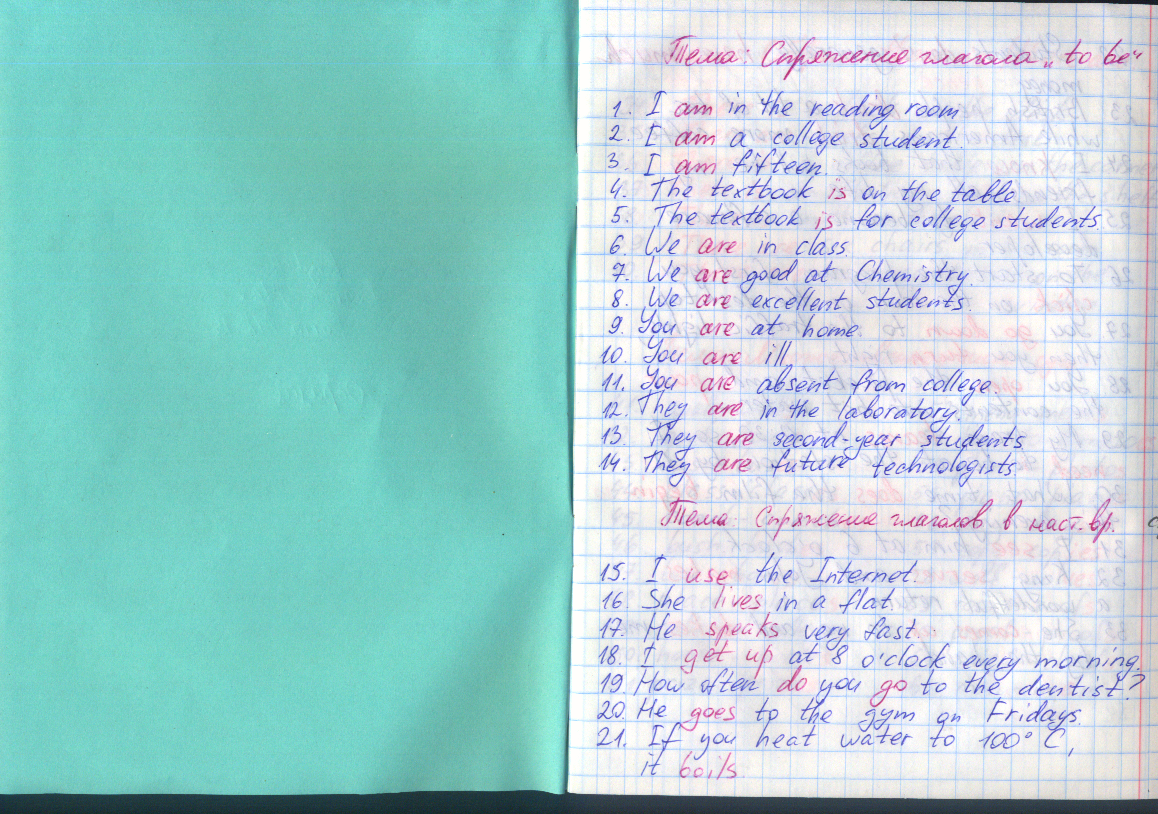 Тема: Спряжение глагола „to be"
1. I am in the reading room
2. I am a college student.
3. I am fifteen.
4. The textbook is on the table.
5. The textbook is for college students.
6. We are in class.
7. We are good at Chemistry.
8. We are excellent students.
9. You are at home.
10. You are ill.
11. You are absent from college.
12. They are in the laboratory.
13. They are second-year students
14. They are future technologists.
Тема: Спряжение глаголов в наст. вр.
15. I use the Internet.
16. She lives in a flat
17. He speaks very fast.
18. I get up at 8 o'clock every morning.
19. How often do you go to the dentist?
20. He goes to the gym on Fridays.
21. If you heat water to 100° C,
it boils.